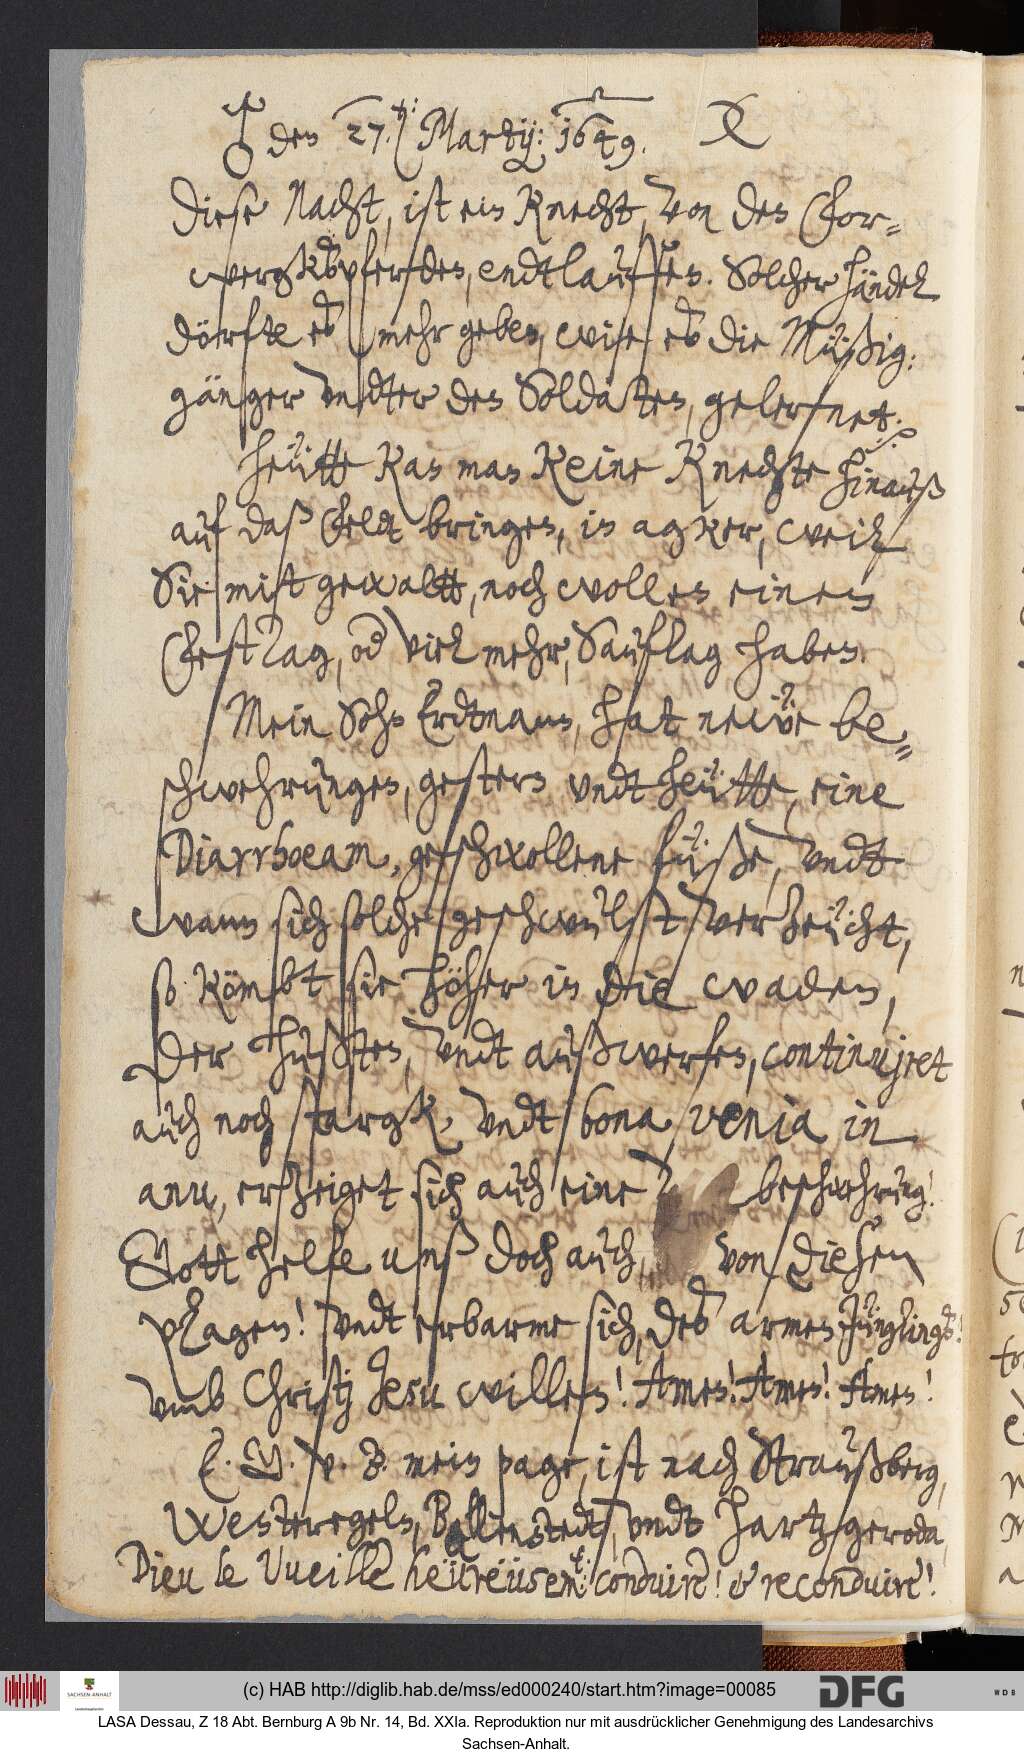 ♂ den 27.ti: Martij: 1649.
Diese Nacht, ist ein Knecht, von den Chor-
wergkßpferden, endtlauffen. Solcher händel
dörfte eß mehr geben, wie eß die Müßig:
gänger vndter den Soldaten, gelernet.
Heütt kan man keine Knechte hinauß
auf daß Feldt bringen, in agker, weil
Sie mitt gewaltt, noch wollen einen
Festtag, od viel mehr, Sauftag haben.
Mein Sohn Erdtmann, hat newe be-
schwehrungen, gestern vndt heütte, eine
Diarrhoeam, geschwollene füße, vndt
wann sich solche geschwulst verzeücht,
so kömbt sie höher in die waden,
Der Hußten, vndt außwerfen, continujret
auch noch stargk, vndt bona venia in
anu, erzeiget sich auch eine beschwehrung!
Gott helfe unß doch auch, von diesen
plagen! vndt erbarme sich, deß armen Jünglingß!
vmb Christj Jesu willen! Amen! Amen! Amen!
mein page, ist nach Straußberg,
Westeregeln, Ballenstedt, vndt Hartzgeroda,
Dieu le Vueille heüreüsemt: conduire! & reconduire!
(c) HAB http://diglib.hab.de/mss/ed000240/start.htm?image=00085
SACHSEN-ANHALT
DFG
WDB
LASA Dessau, Z 18 Abt. Bernburg A 9b Nr. 14, Bd. XXIa. Reproduktion nur mit ausdrücklicher Genehmigung des Landesarchivs
Sachsen-Anhalt.